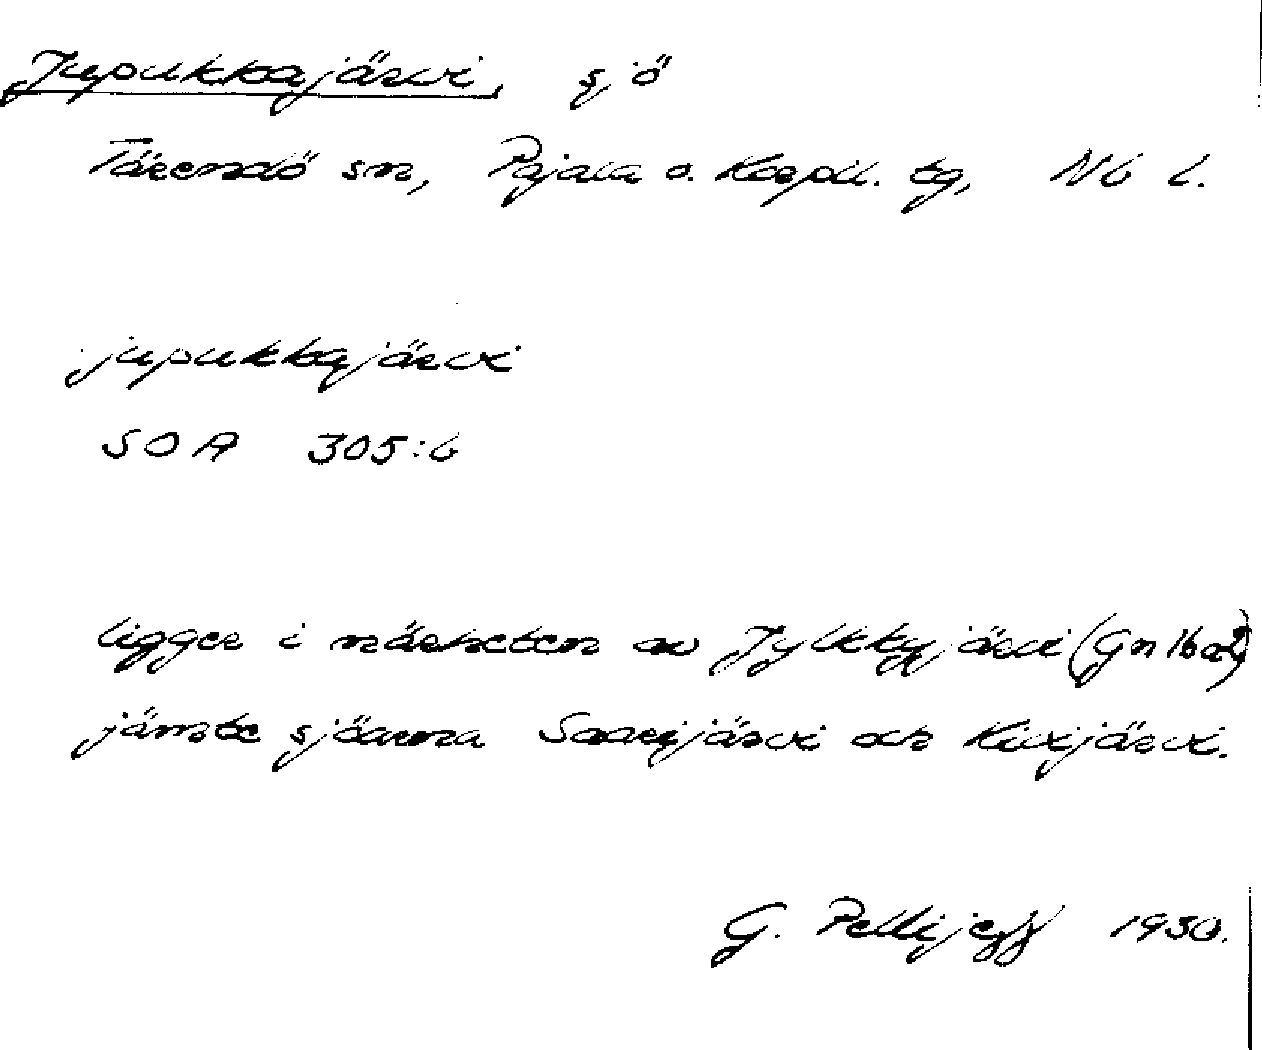 Jupukkajärvi, sjö
Tärendö sn, Pajala o. Korpil. tg, Nb l.
jupukkajärvi
SOA 305:6
ligger i närheten av Jylkkyjärvi (Gn 16 a2)
jämte sjöarna Saarijärvi och Kivijärvi.
G. Pellijeff 1930.